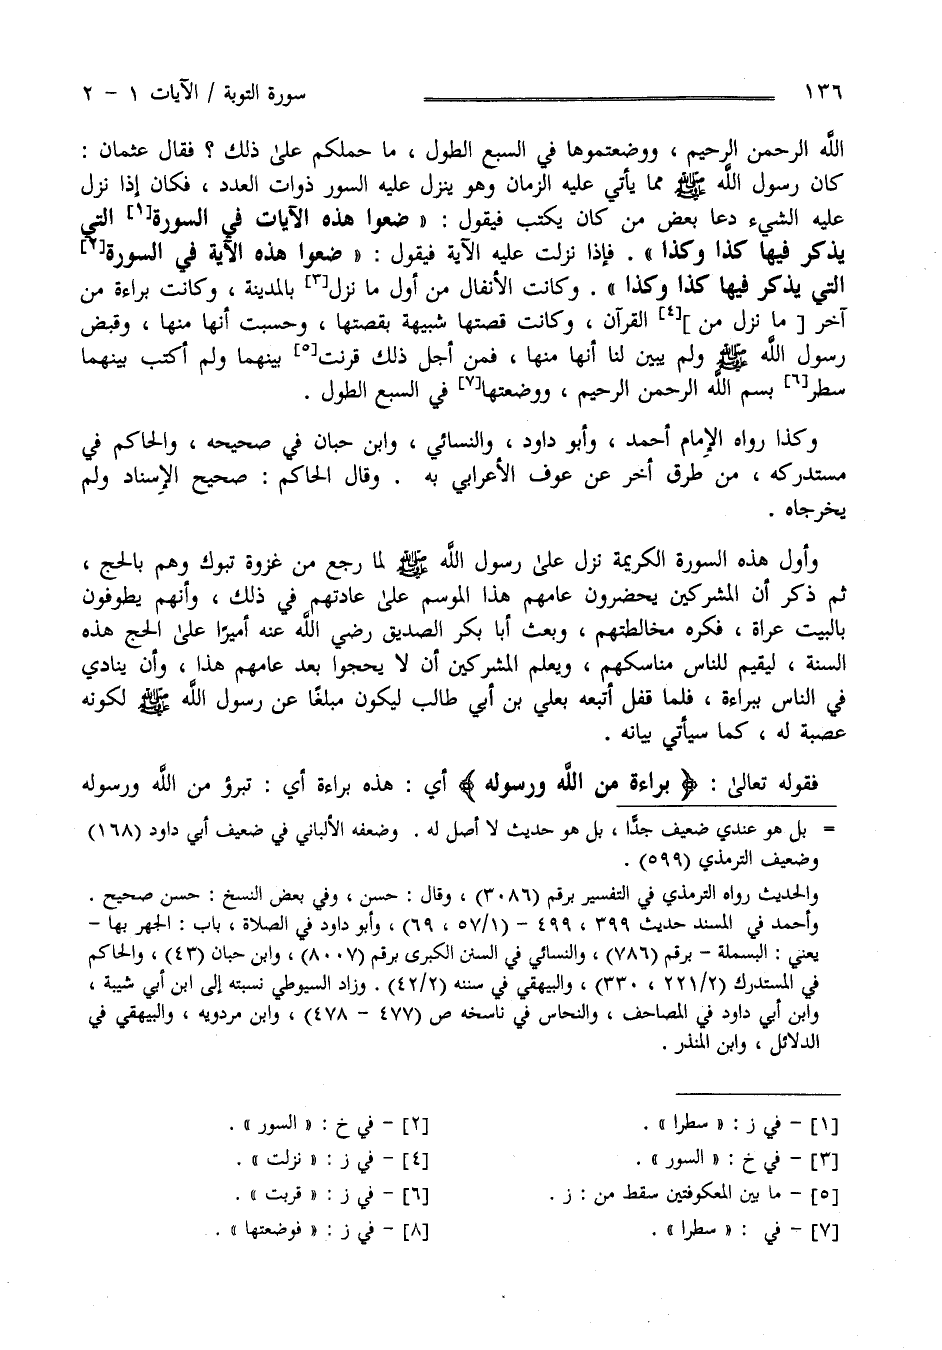 ١٣٦ سورة التوبة / الآيات ١ - ٢
اللَّه الرحمن الرحيم ، ووضعتموها في السبع الطول ، ما حملكم علىٰ ذلك ؟ فقال عثمان :
كان رسول اللَّه ﷺ مما يأتي عليه الزمان وهو ينزل عليه السور ذوات العدد ، فكان إذا نزل
عليه الشيء دعا بعض من كان يكتب فيقول : « ضعوا هذه الآيات في السورة[١] التي
يذكر فيها كذا وكذا » . فإذا نزلت عليه الآية فيقول : « ضعوا هذه الآية في السورة[٢]
التي يذكر فيها كذا وكذا » . وكانت الأنفال من أول ما نزل[٣] بالمدينة ، وكانت براءة من
آخر [ ما نزل من ][٤] القرآن ، وكانت قصتها شبيهة بقصتها ، وحسبت أنها منها ، وقبض
رسول اللَّه ﷺ ولم يبين لنا أنها منها ، فمن أجل ذلك قرنت[٥] بينهما ولم أكتب بينهما
سطر[٦] بسم اللَّه الرحمن الرحيم ، ووضعتها[٧] في السبع الطول .
وكذا رواه الإمام أحمد ، وأبو داود ، والنسائي ، وابن حبان في صحيحه ، والحاكم في
مستدركه ، من طرق أخر عن عوف الأعرابي به . وقال الحاكم : صحيح الإسناد ولم
يخرجاه .
وأول هذه السورة الكريمة نزل علىٰ رسول اللَّه ﷺ لما رجع من غزوة تبوك وهم بالحج ،
ثم ذكر أن المشركين يحضرون عامهم هذا الموسم علىٰ عادتهم في ذلك ، وأنهم يطوفون
بالبيت عراة ، فكره مخالطتهم ، وبعث أبا بكر الصديق رضي اللَّه عنه أميرًا علىٰ الحج هذه
السنة ، ليقيم للناس مناسكهم ، ويعلم المشركين أن لا يحجوا بعد عامهم هذا ، وأن ينادي
في الناس ببراءة ، فلما قفل أتبعه بعلي بن أبي طالب ليكون مبلغًا عن رسول اللَّه ﷺ لكونه
عصبة له ، كما سيأتي بيانه .
فقوله تعالىٰ : ﴿ براءة من اللَّه ورسوله ﴾ أي : هذه براءة أي : تبرؤ من اللَّه ورسوله
= بل هو عندي ضعيف جدًّا ، بل هو حديث لا أصل له . وضعفه الألباني في ضعيف أبي داود (١٦٨)
وضعيف الترمذي (٥٩٩) .
والحديث رواه الترمذي في التفسير برقم (٣٠٨٦) ، وقال : حسن ، وفي بعض النسخ : حسن صحيح .
وأحمد في المسند حديث ٣٩٩ ، ٤٩٩ - (٥٧/١ ، ٦٩) ، وأبو داود في الصلاة ، باب : الجهر بها -
يعني : البسملة - برقم (٧٨٦) ، والنسائي في السنن الكبرى برقم (٨٠٠٧) ، وابن حبان (٤٣) ، والحاكم
في المستدرك (٢٢١/٢ ، ٣٣٠) ، والبيهقي في سننه (٤٢/٢) . وزاد السيوطي نسبته إلى ابن أبي شيبة ،
وابن أبي داود في المصاحف ، والنحاس في ناسخه ص (٤٧٧ - ٤٧٨) ، وابن مردويه ، والبيهقي في
الدلائل ، وابن المنذر .
[١] - في ز : « سطرا » . [٢] - في خ : « السور » .
[٣] - في خ : « السور » . [٤] - في ز : « نزلت » .
[٥] - ما بين المعكوفتين سقط من : ز . [٦] - في ز : « قربت » .
[٧] - في : « سطرا » . [٨] - في ز : « فوضعتها » .